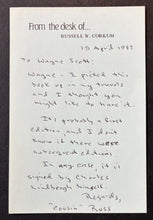 From the desk of...
RUSSELL W. CORKUM
19 April 1987
To Wayne Scott:
Wayne - I picked this
book up in my travels
and I thought you
might like to have it.
It's probably a first
edition, and I don't
know if there were
subsequent editions.
In any case, it is
signed by Charles
Lindbergh himself.
Regards,
"Cousin" Russ